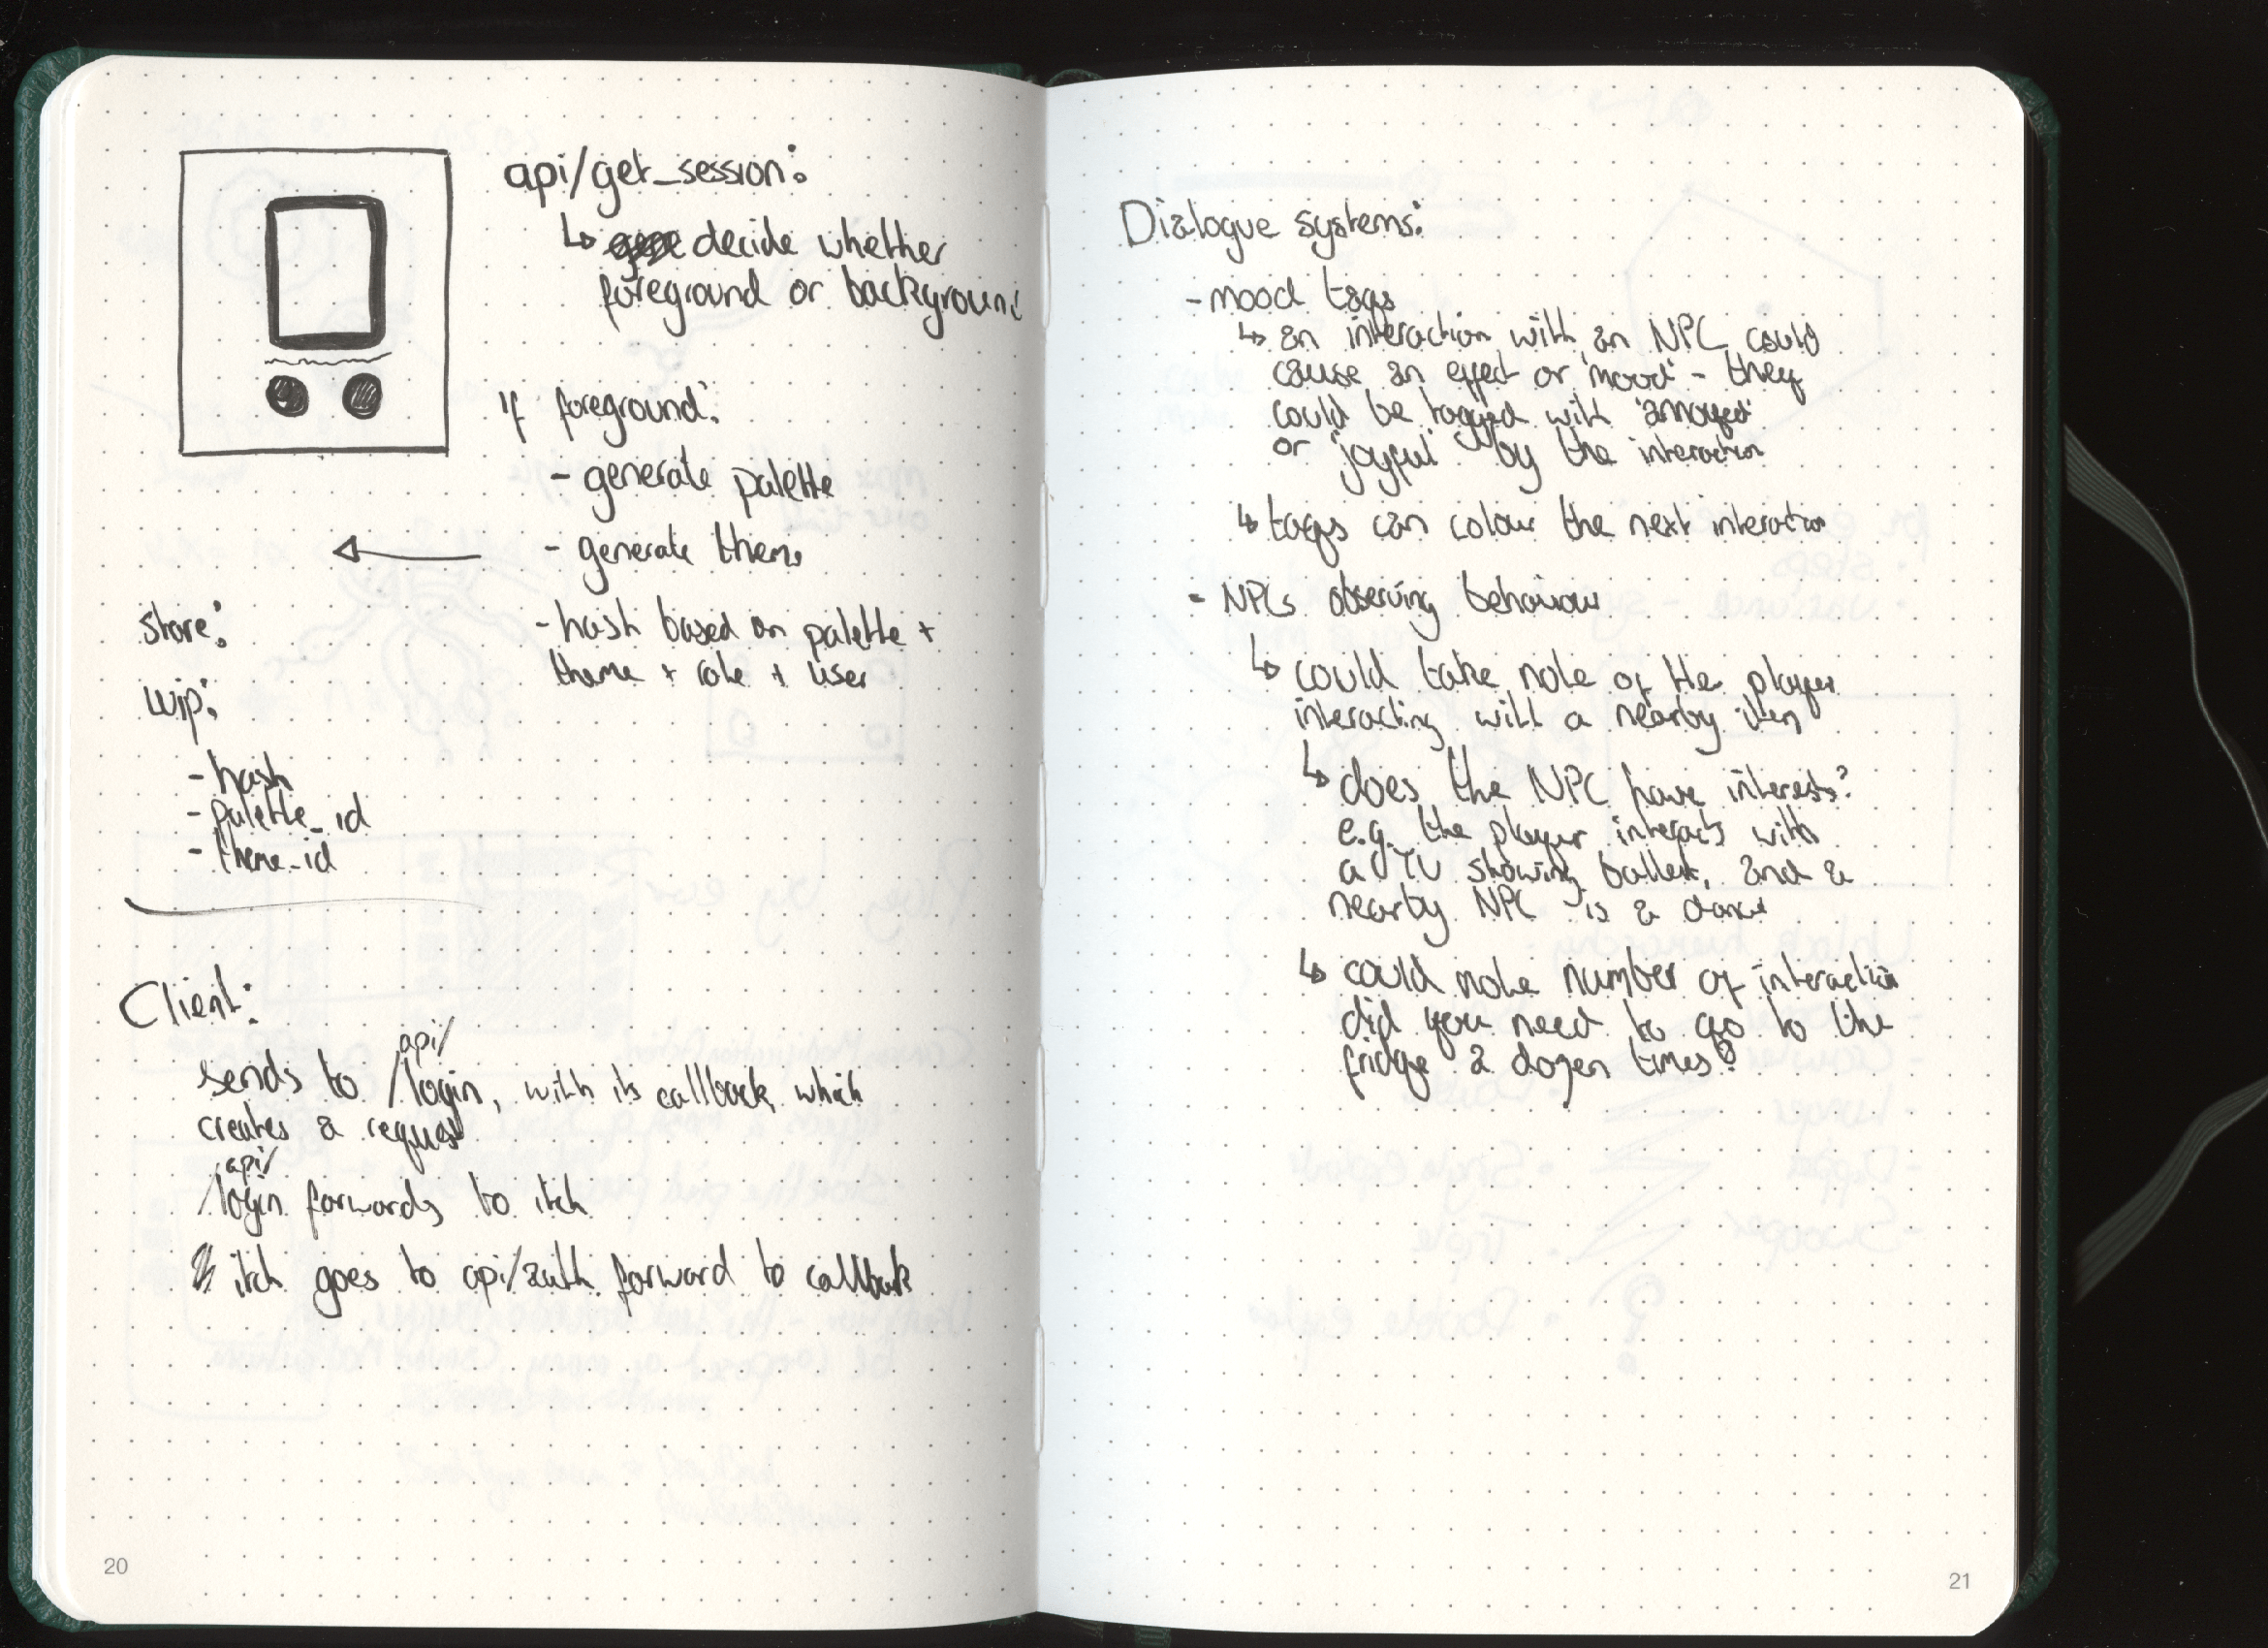 api/get_session:
↳ decide whether
foreground or background
If foreground:
- generate palette
- generate theme
- hash based on palette +
theme + role + user
store:
wip:
- hash
- palette_id
- theme_id
Client:
api/
sends to /login, with its callback, which
creates a request
api/
/login forwards to itch
itch goes to api/auth forward to callback
20
Dialogue systems:
- mood tags
↳ an interaction with an NPC could
cause an effect or 'mood' - they
could be tagged with 'annoyed'
or 'joyful' by the interaction
↳ tags can colour the next interaction
- NPCs observing behaviour
↳ could take note of the player
interacting with a nearby item
↳ does the NPC have interests?
e.g. the player interacts with
a TV showing ballet, and a
nearby NPC is a dancer
↳ could note number of interaction
did you need to go to the
fridge a dozen times?
21